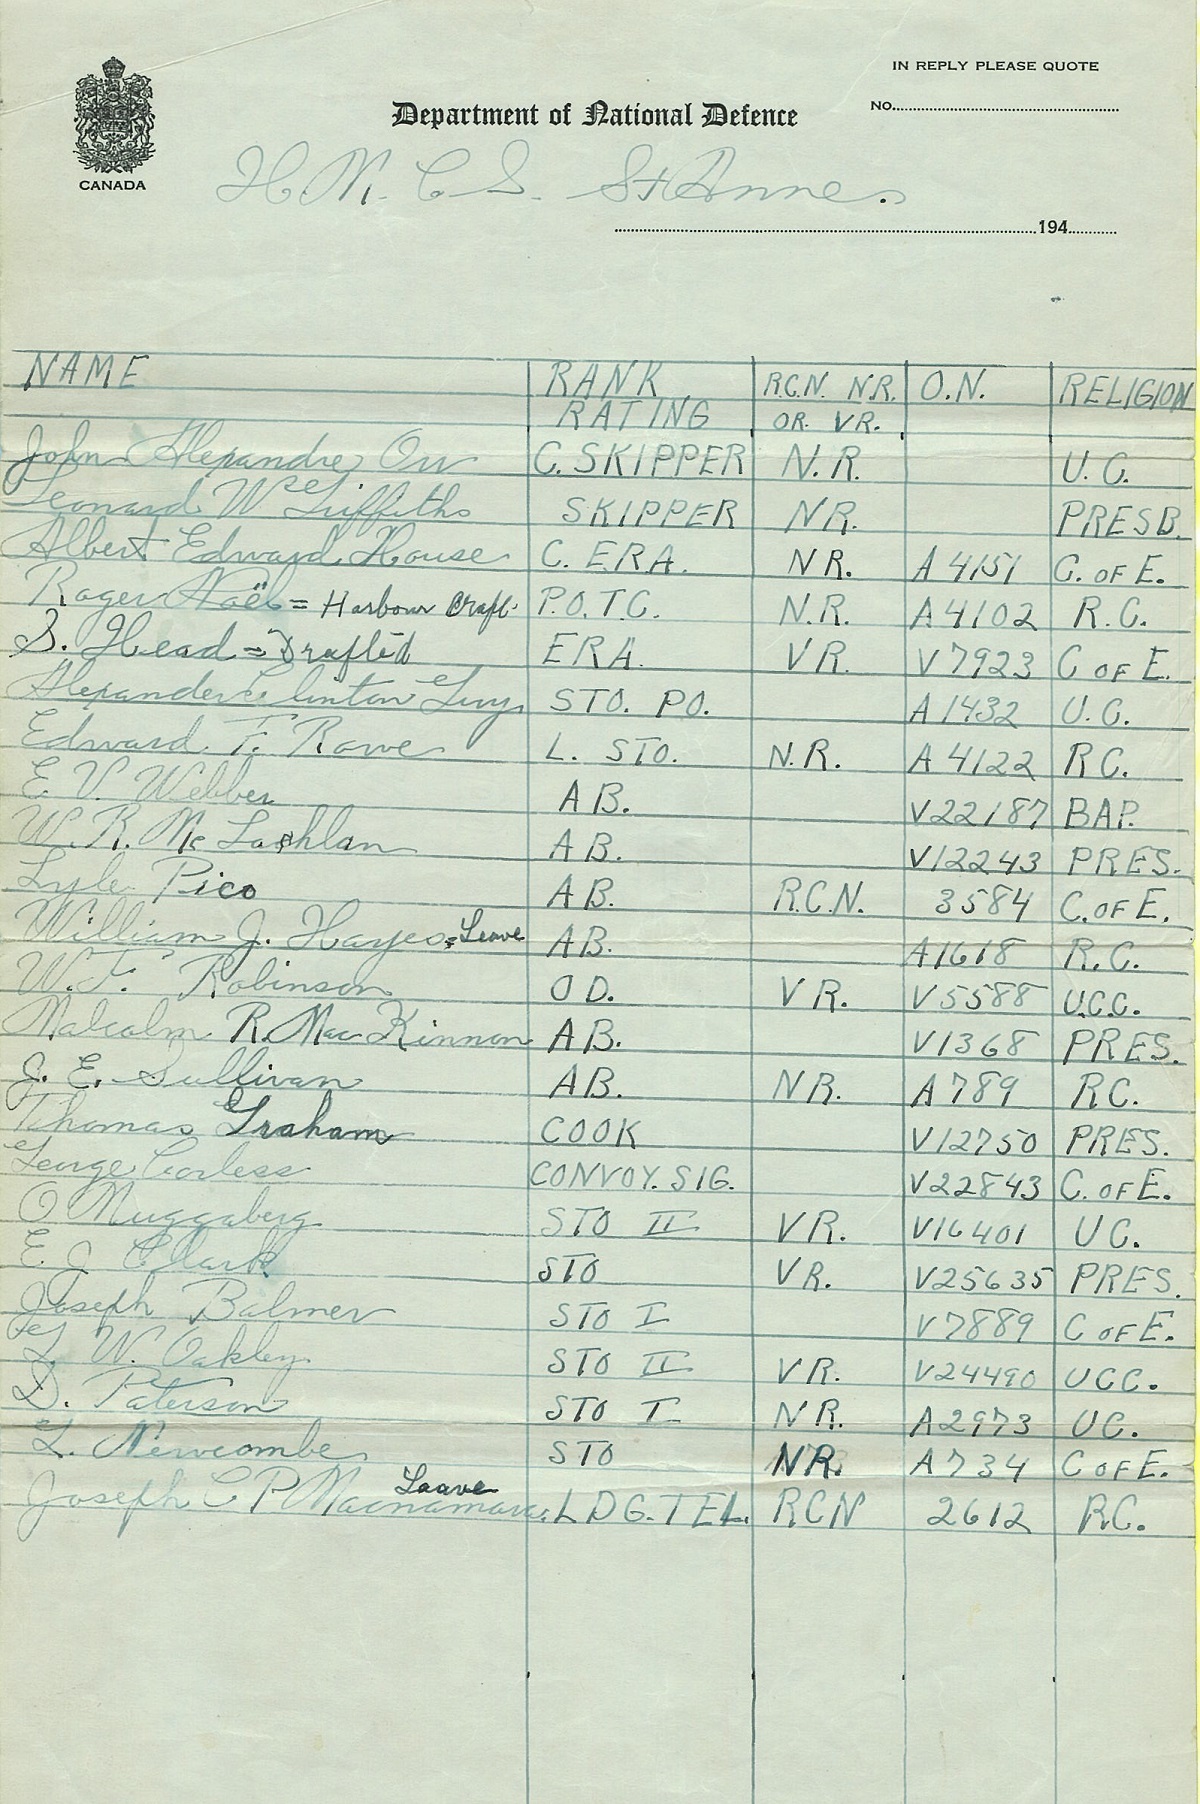 IN REPLY PLEASE QUOTE
No.
Department of National Defence
CANADA
H.M.C.S. St Anne.
194
NAME RANK R.C.N. N.R. O.N. RELIGION
RATING OR. VR.
John Alexandre Orr C. SKIPPER N.R. U.C.
Leonard W Griffiths SKIPPER NR. PRESB.
Albert Edward House C. ERA. NR. A4151 C. OF E.
Roger Noël = Harbour Craft. P.O.T.C. N.R. A4102 R.C.
S. Head = Drafted ERA. VR. V7923 C OF E.
Alexander Clinton STO. PO. A1432 U.C.
Edward F. Rowe L. STO. N.R. A4122 RC.
E. V. Webber AB. V22187 BAP.
W. R. Mc Lachlan AB. V12243 PRES.
Lyle Pico AB. R.C.N. 3584 C. OF E.
William J. Hayes = Leave AB. A1618 R.C.
W. F. Robinson OD. VR. V5588 U.C.C.
Malcolm R. Mac Kinnon AB. V1368 PRES.
J. E. Sullivan AB. NR. A789 RC.
Thomas Graham COOK V12750 PRES.
George Corless CONVOY. SIG. V22843 C. OF E.
O Muggaberg STO II VR. V16401 UC.
E. J Clark STO VR. V25635 PRES.
Joseph Balmer STO I V7889 C OF E.
W. Oakley STO II VR. V24490 UCC.
D. Paterson STO I NR. A2973 UC.
L. Newcombe STO NR. A734 C OF E.
Leave
Joseph C P Macnamara. LDG. TEL. RCN 2612 RC.